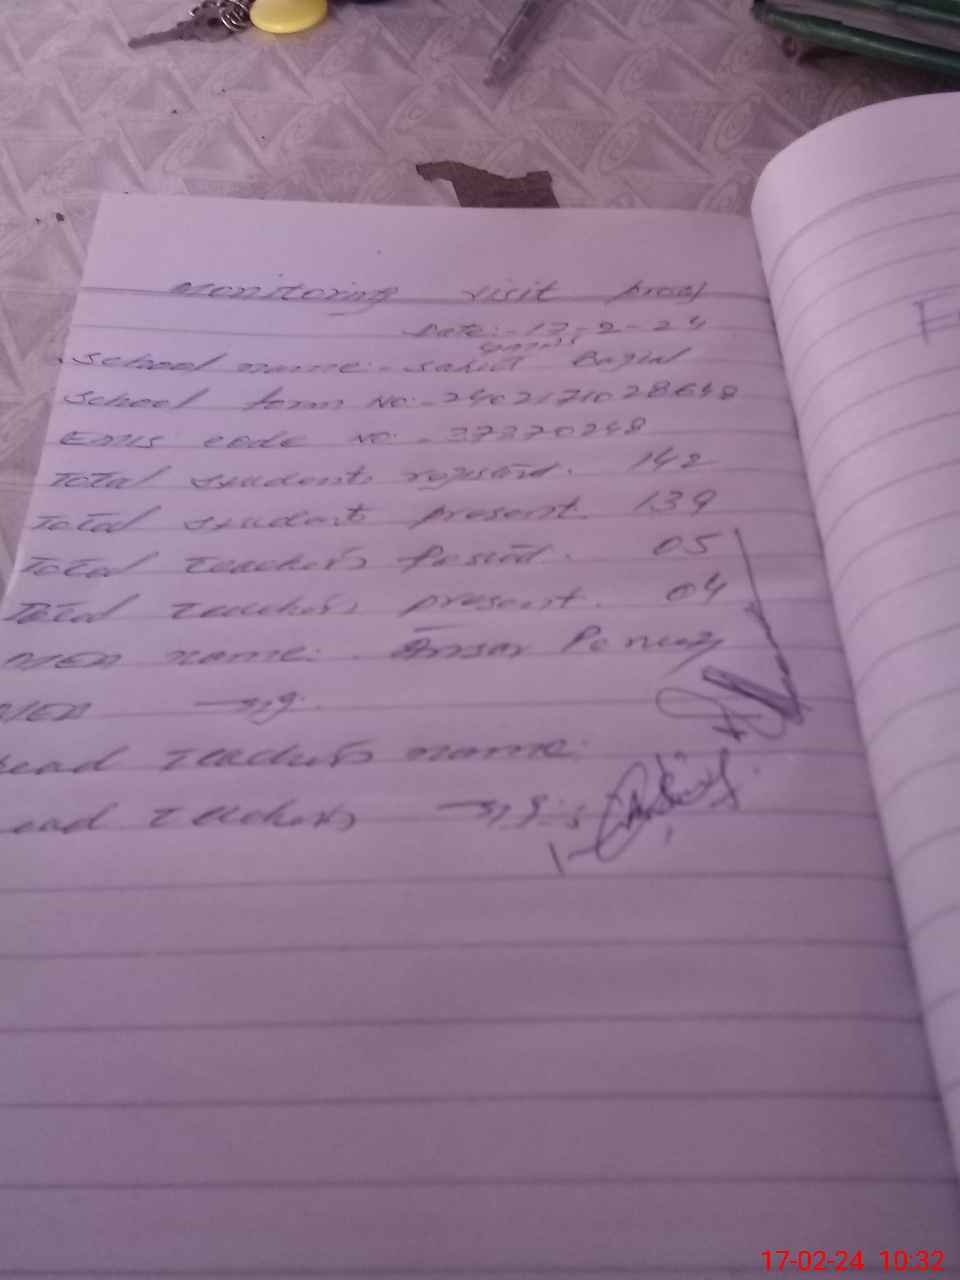 Monitoring visit proof
Date:- 17-2-24
School name:- Sahid
School form No:- 2402171028648
EMIS code No. - 37370248
Total students registerd. 142
Total student present. 139
Total teachers Posted. 05
Total teachers present. 04
MEA name: Ansar Perwez
MEA sig.
Head Teachers name:
Head Teachers sig:-
17-02-24 10:32